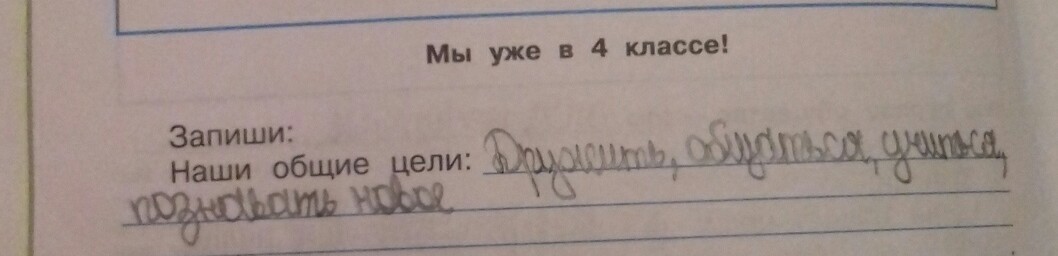 Мы уже в 4 классе!
Запиши:
Наши общие цели: Дружить, общаться, учиться,
познавать новое